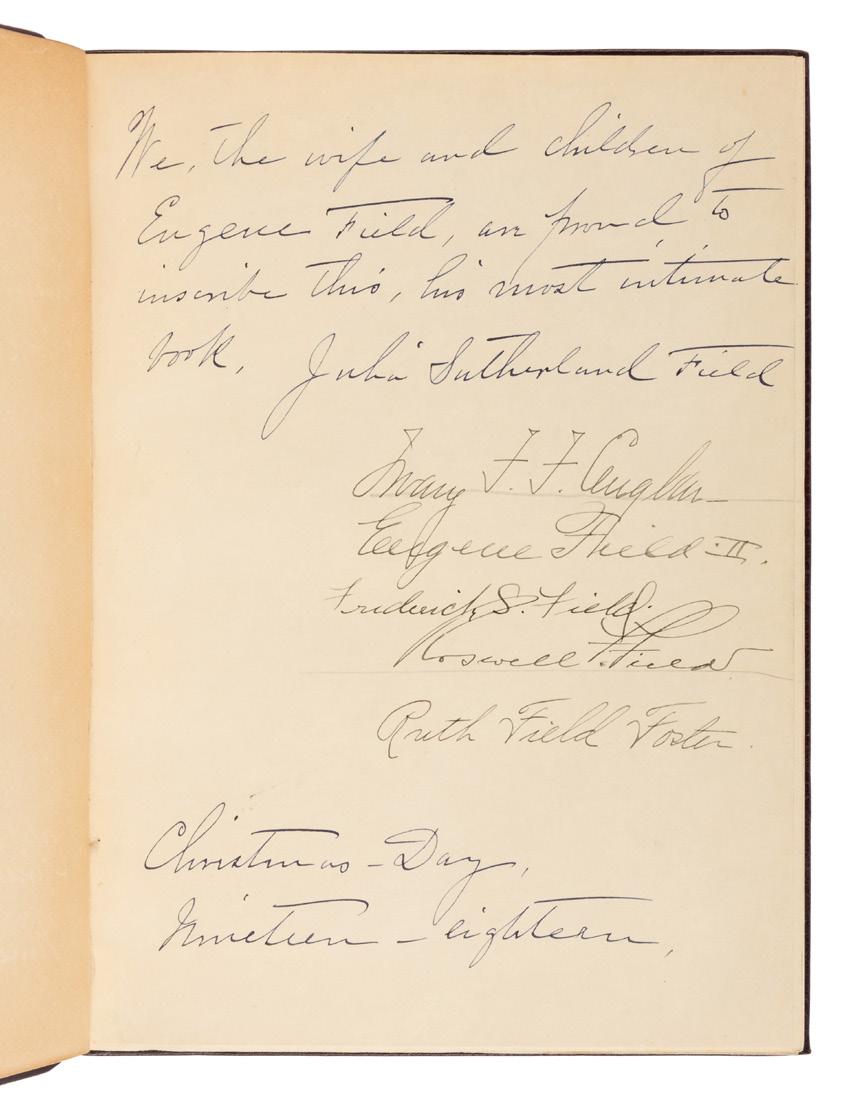 We, the wife and children of
Eugene Field, are proud to
inscribe this, his most intimate
book. Julia Sutherland Field
Mary F. F. Englar
Eugene Field II.
Frederick S. Field.
Roswell F. Field
Ruth Field Foster.
Christmas-Day,
Nineteen-eighteen,